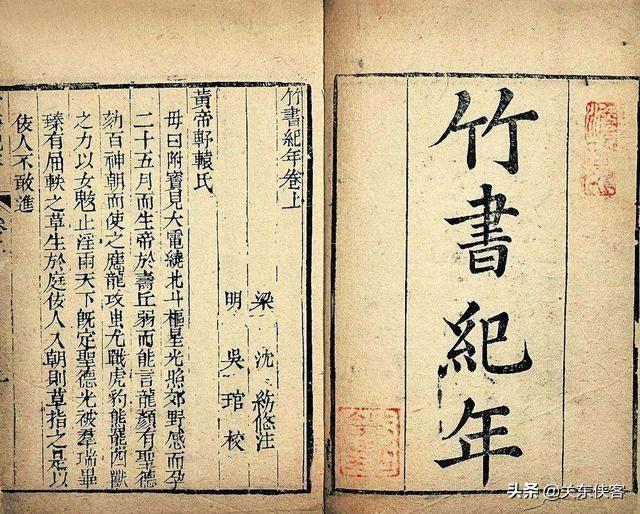 竹書紀年
竹書紀年卷上
梁 沈 注
明 吳琯校
黃帝軒轅氏
母曰附寶見大電繞北斗樞星光照郊野感而孕
二十五月而生帝於壽丘弱而能言龍顏有聖德
劾百神朝而使之應龍攻蚩尤戰虎豹熊羆四獸
之力以女魃止淫雨天下旣定聖德光被羣瑞畢
臻有屈軼之草生於庭佞人入朝則草指之是以
佞人不敢進
头条 @关东侠客